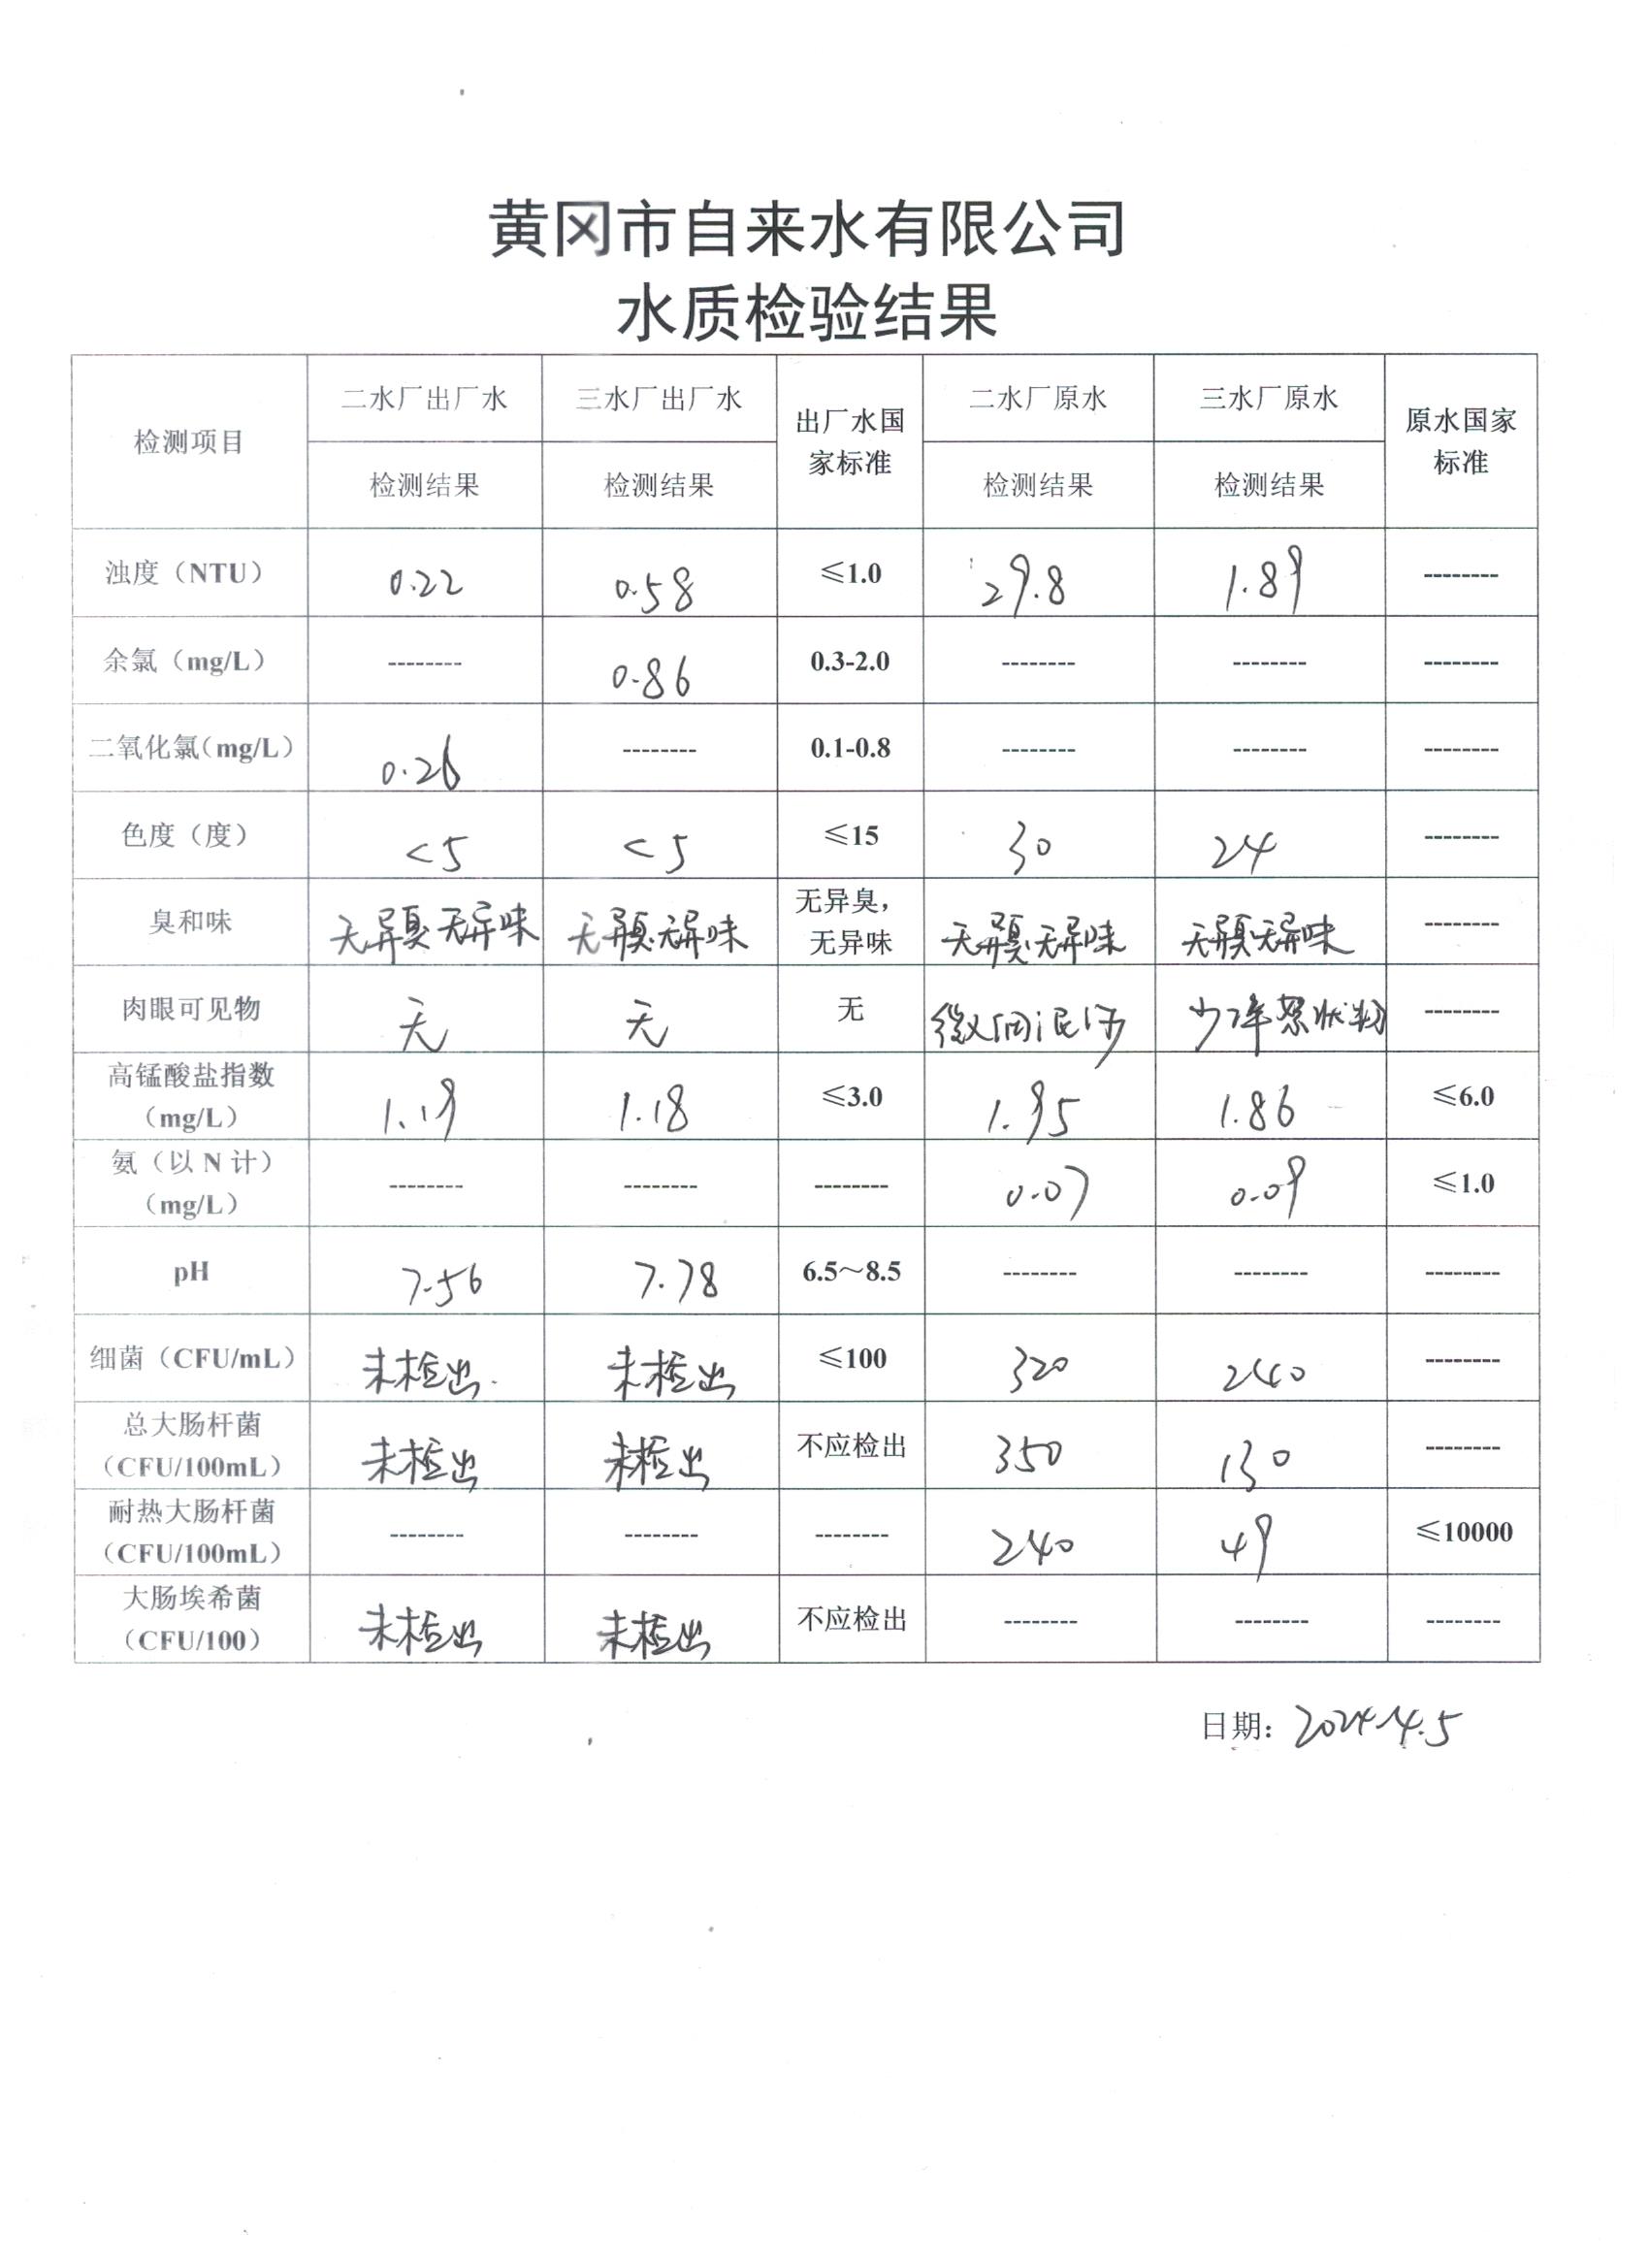 黄冈市自来水有限公司
水质检验结果
检测项目 二水厂出厂水 三水厂出厂水 出厂水国家标准 二水厂原水 三水厂原水 原水国家标准
检测结果 检测结果 检测结果 检测结果
浊度（NTU） 0.22 0.58 ≤1.0 29.8 1.89 --------
余氯（mg/L） -------- 0.86 0.3-2.0 -------- -------- --------
二氧化氯（mg/L） 0.26 -------- 0.1-0.8 -------- -------- --------
色度（度） <5 <5 ≤15 30 24 --------
臭和味 无异臭无异味 无异臭无异味 无异臭，无异味 无异臭无异味 无异臭无异味 --------
肉眼可见物 无 无 无 微细泥沙 少许絮状物 --------
高锰酸盐指数（mg/L） 1.19 1.18 ≤3.0 1.95 1.86 ≤6.0
氨（以 N 计）（mg/L） -------- -------- -------- 0.07 0.09 ≤1.0
pH 7.56 7.78 6.5～8.5 -------- -------- --------
细菌（CFU/mL） 未检出 未检出 ≤100 320 240 --------
总大肠杆菌（CFU/100mL） 未检出 未检出 不应检出 350 130 --------
耐热大肠杆菌（CFU/100mL） -------- -------- -------- 240 49 ≤10000
大肠埃希菌（CFU/100） 未检出 未检出 不应检出 -------- -------- --------
日期：2024.4.5